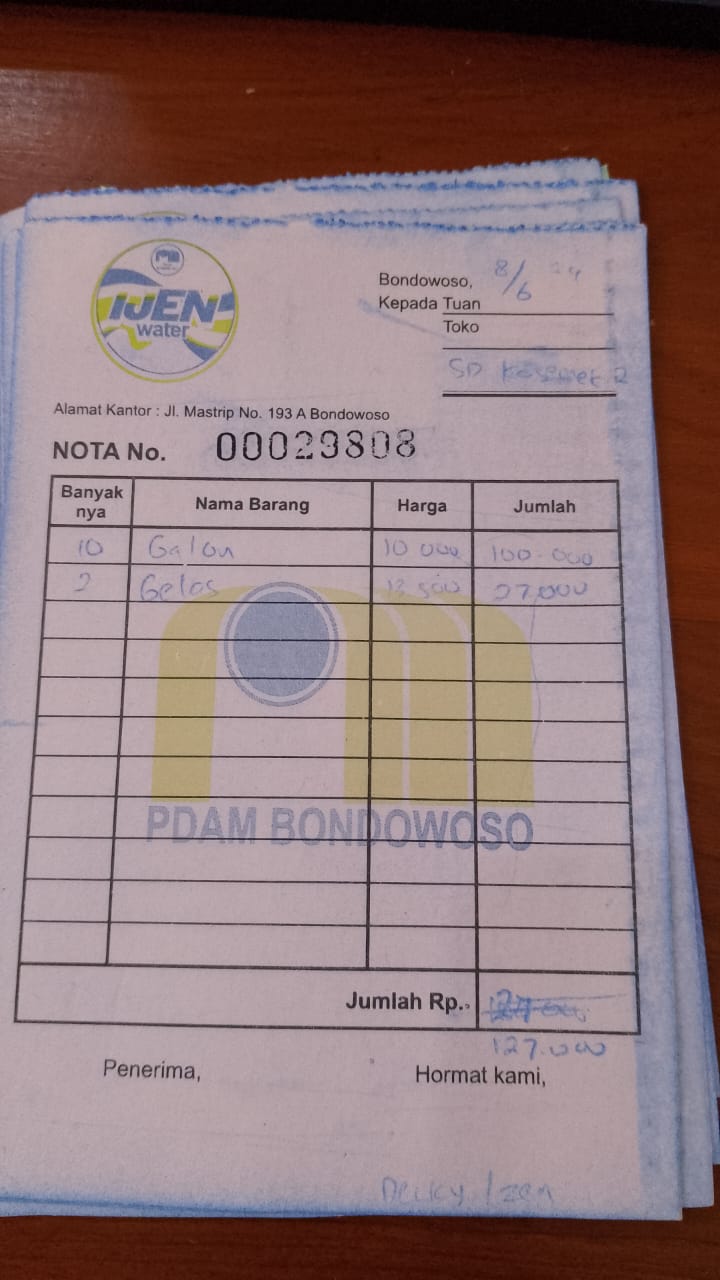 IJEN
water
Bondowoso, 8/6 24
Kepada Tuan
Toko
SD
2
Alamat Kantor : Jl. Mastrip No. 193 A Bondowoso
NOTA No. 00029808
Banyak nya Nama Barang Harga Jumlah
10 Galon 10 000 100.000
2 Gelas 13 500 27.000
PDAM BONDOWOSO
Jumlah Rp.
127.000
Penerima, Hormat kami,